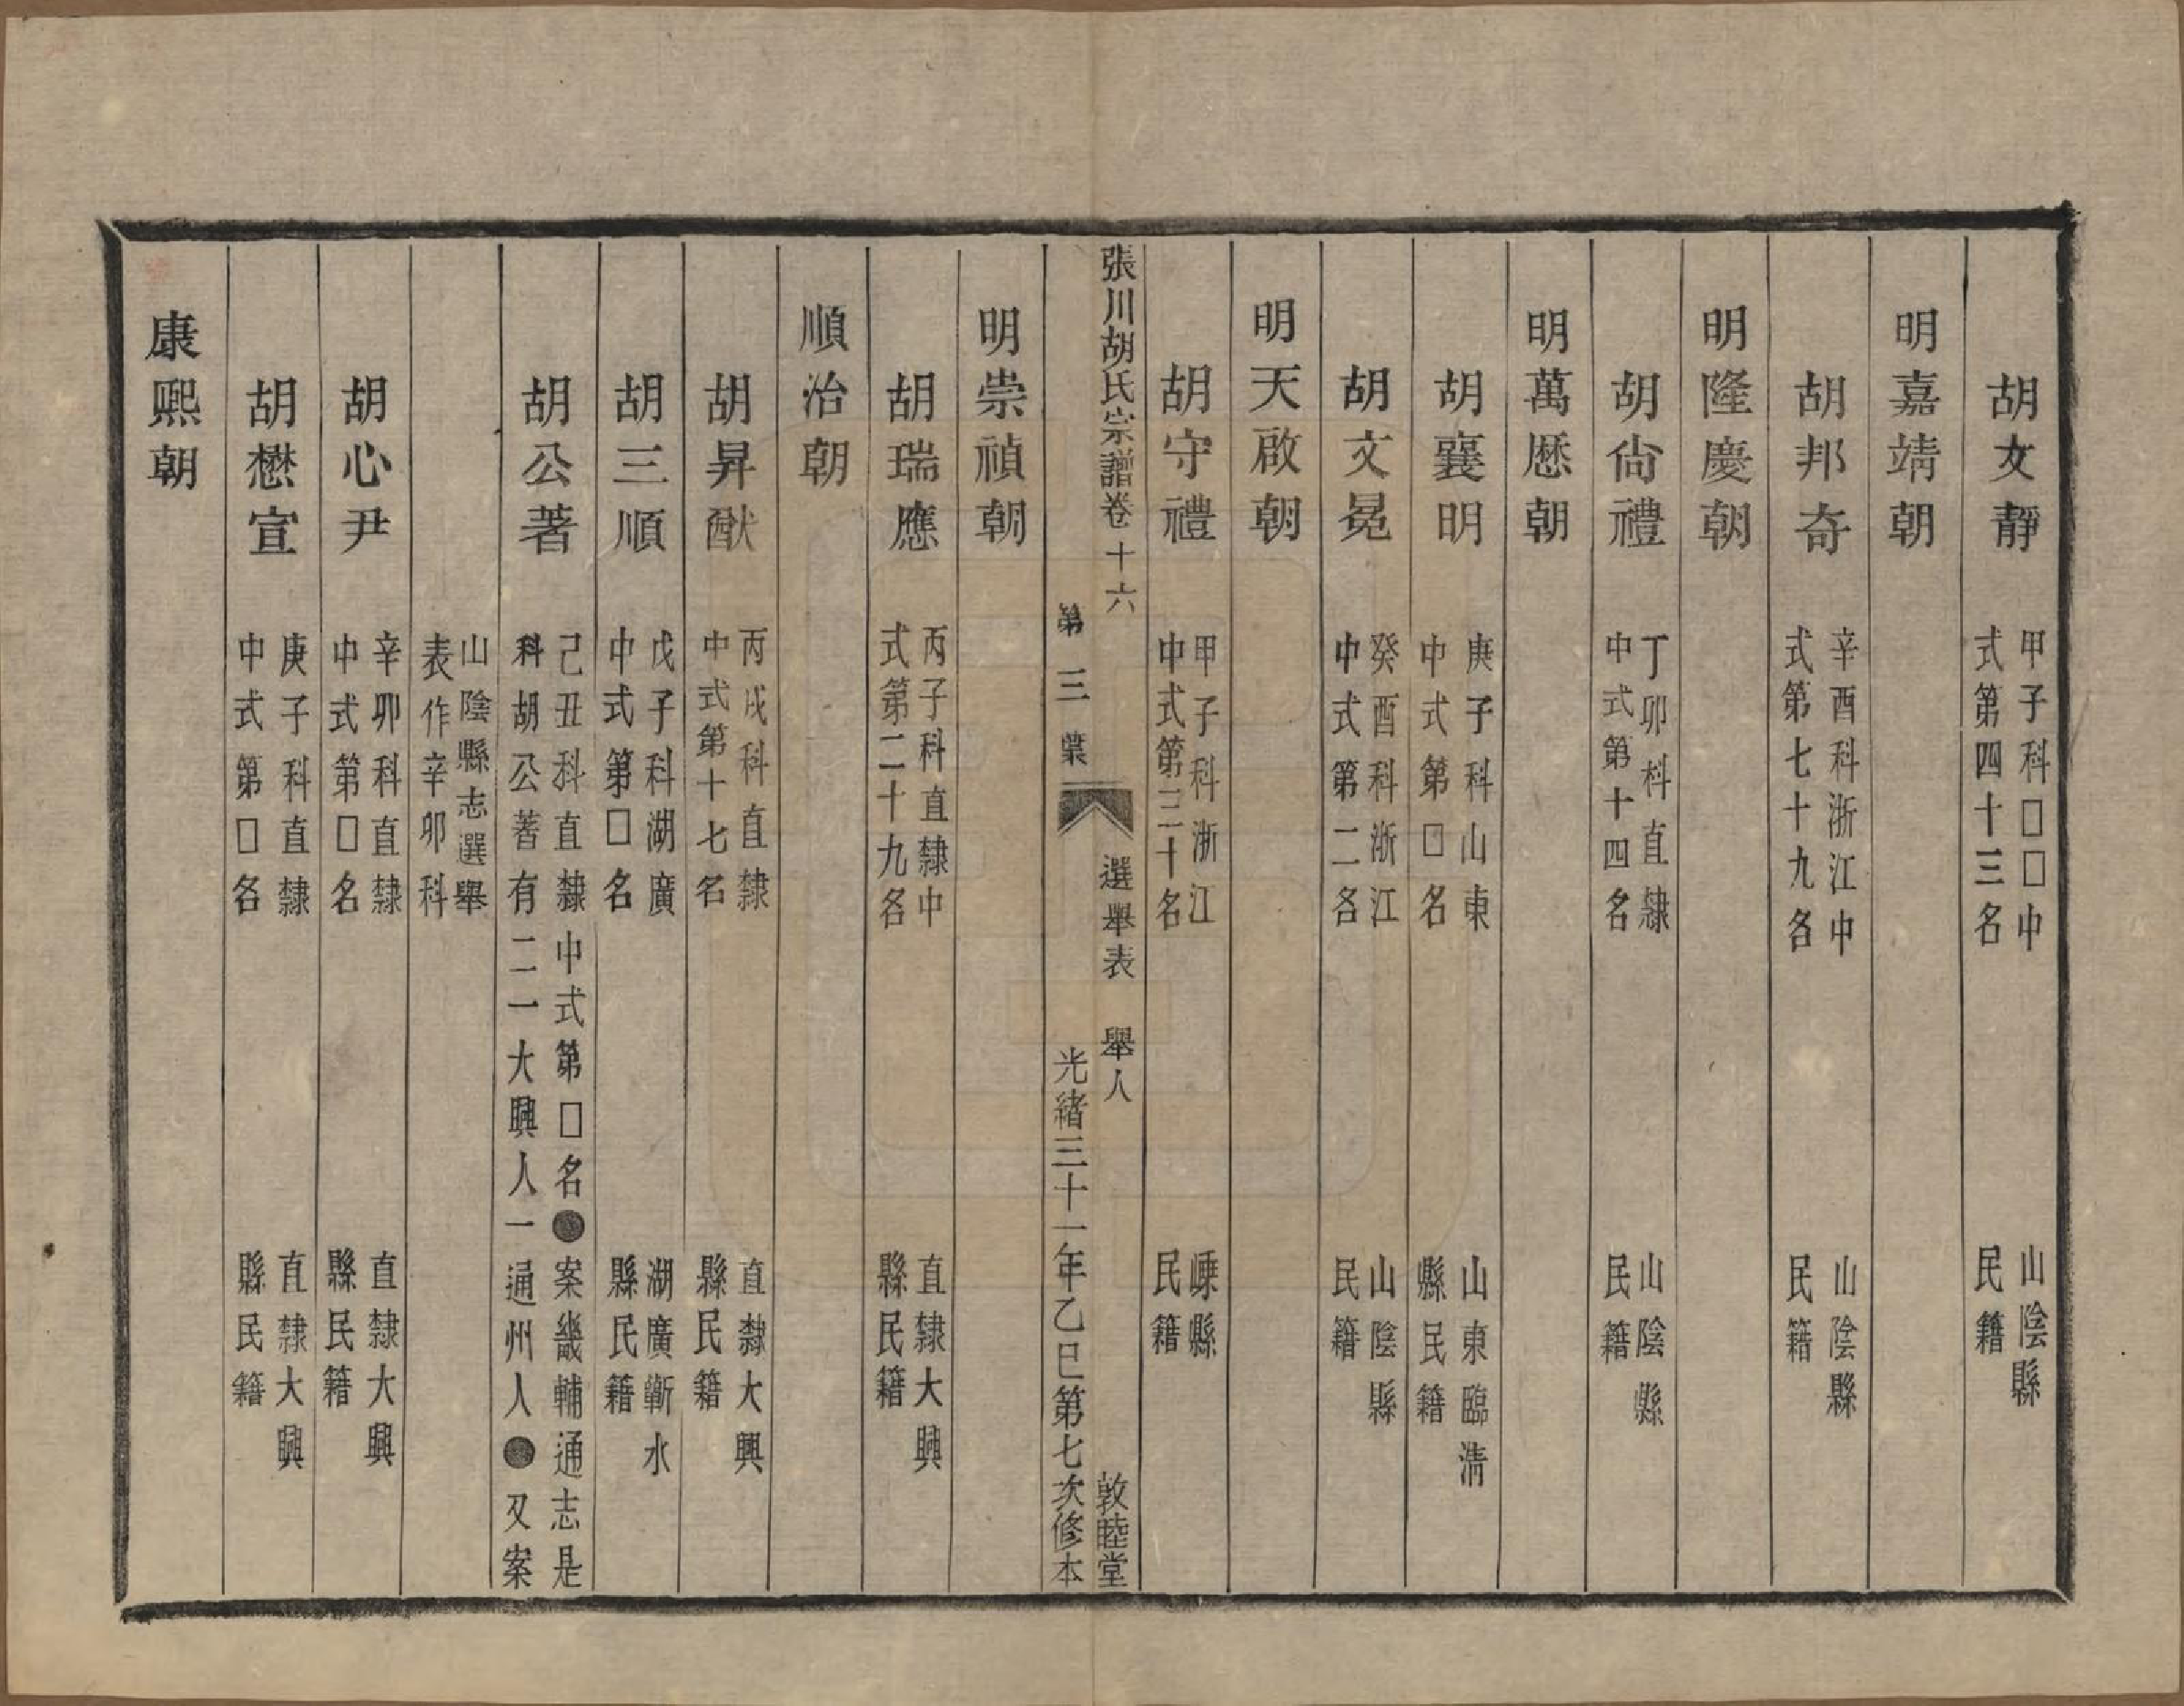 胡文靜　甲子科□□中式第四十三名　山陰縣民籍
明嘉靖朝
胡邦奇　辛酉科浙江中式第七十九名　山陰縣民籍
明隆慶朝
胡尙禮　丁卯科直隸中式第十四名　山陰縣民籍
明萬厯朝
胡襄明　庚子科山東中式第□名　山東臨淸縣民籍
胡文冕　癸酉科浙江中式第二名　山陰縣民籍
明天啟朝
胡守禮　甲子科浙江中式第三十名　嵊縣民籍
張川胡氏宗譜卷十六　選舉表　舉人　敦睦堂
第三葉　光緒三十一年乙巳第七次修本
明崇禎朝
胡瑞應　丙子科直隸中式第二十九名　直隸大興縣民籍
順治朝
胡昇猷　丙戌科直隸中式第十七名　直隸大興縣民籍
胡三順　戊子科湖廣中式第□名　湖廣蘄水縣民籍
胡公著　己丑科直隸中式第□名●案畿輔通志是科胡公著有二一大興人一通州人●又案
山陰縣志選舉表作辛卯科
胡心尹　辛卯科直隸中式第□名　直隸大興縣民籍
胡懋宣　庚子科直隸中式第□名　直隸大興縣民籍
康熙朝